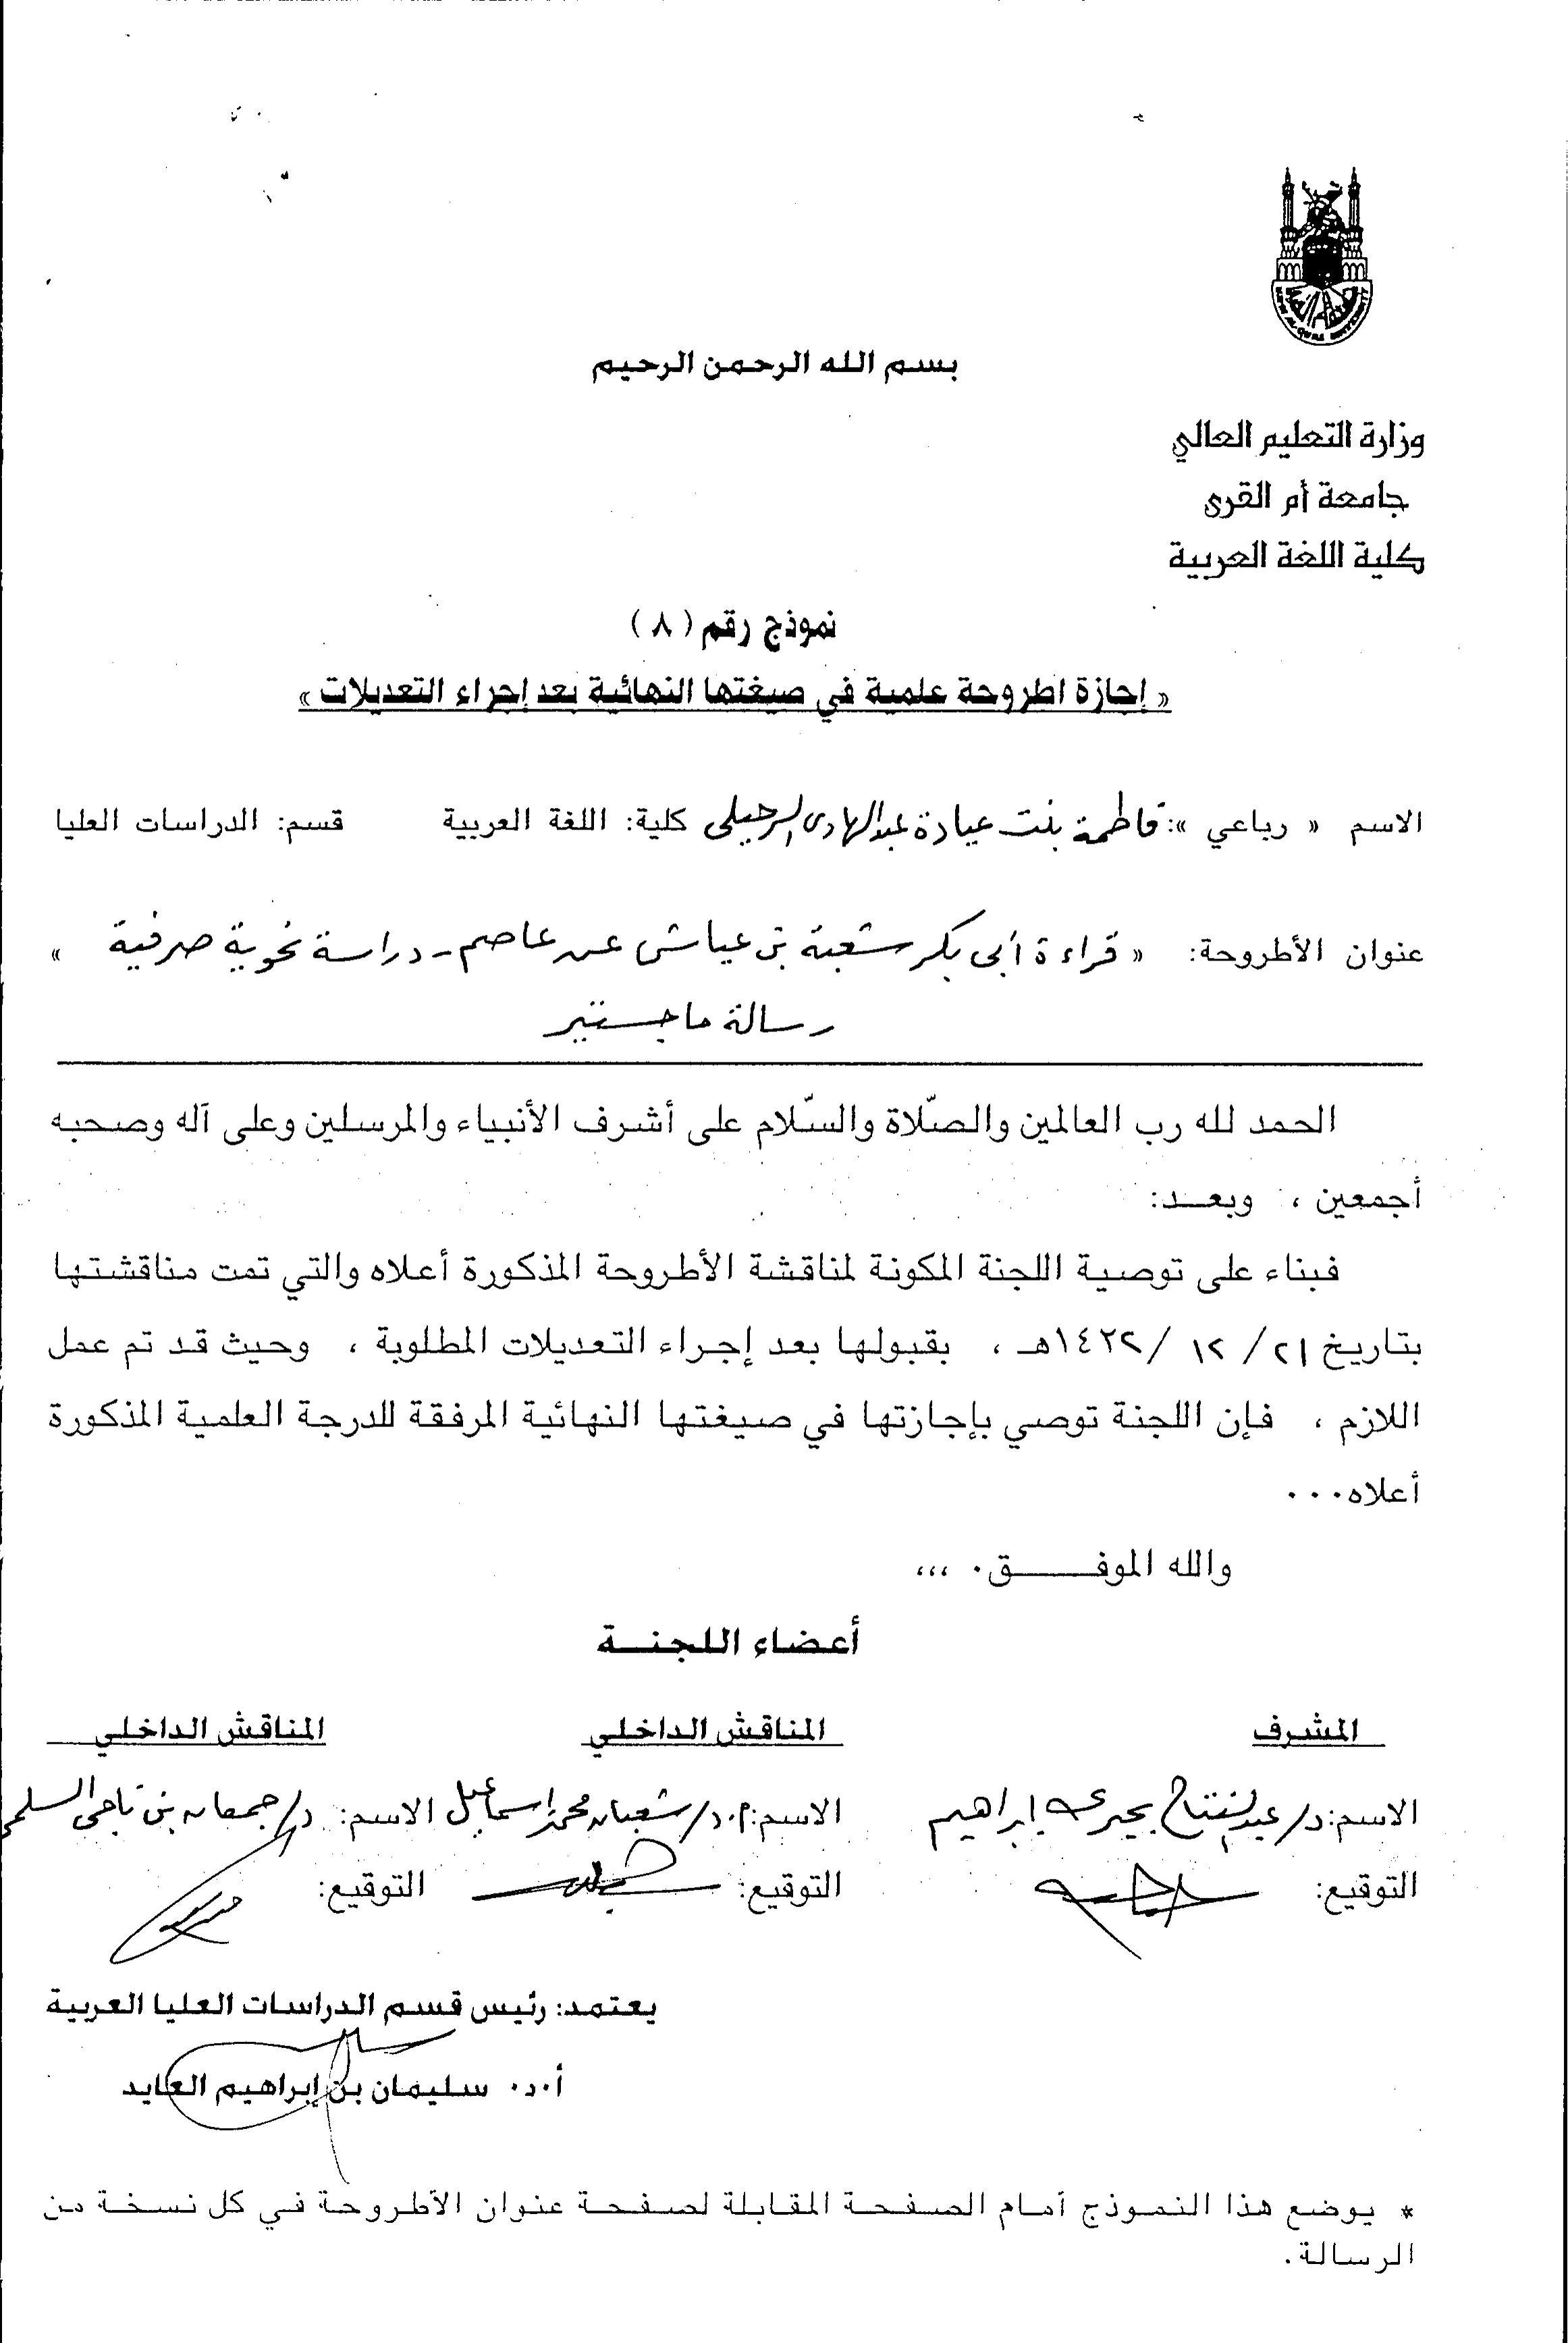 بسم الله الرحمن الرحيم
وزارة التعليم العالي
جامعة أم القرى
كلية اللغة العربية
نموذج رقم ( ٨ )
« إجازة اطروحة علمية في صيغتها النهائية بعد إجراء التعديلات »
الاسم « رباعي »: فاطمة بنت عيادة عبدالهادي الرحيلي كلية: اللغة العربية قسم: الدراسات العليا
عنوان الأطروحة: « قراءة أبي بكر شعبة بن عياش عن عاصم - دراسة نحوية صرفية »
رسالة ماجستير
الحمد لله رب العالمين والصّلاة والسّلام على أشرف الأنبياء والمرسلين وعلى آله وصحبه
أجمعين ، وبعـد:
فبناء على توصية اللجنة المكونة لمناقشة الأطروحة المذكورة أعلاه والتي تمت مناقشتها
بتاريخ ٢١/ ١٢ /١٤٢٢هـ ، بقبولها بعد إجراء التعديلات المطلوبة ، وحيث قد تم عمل
اللازم ، فإن اللجنة توصي بإجازتها في صيغتها النهائية المرفقة للدرجة العلمية المذكورة
أعلاه...
والله الموفـــــق. ،،،
أعضاء اللجنـة
المشرف المناقش الداخلي المناقش الداخلي
الاسم: د/ عبدالفتاح بحيري إبراهيم الاسم: أ.د/ شعبان محمد إسماعيل الاسم: د/ جمعان بن ناجي السلمي
التوقيع: التوقيع: التوقيع:
يعتمد: رئيس قسم الدراسات العليا العربية
أ.د. سليمان بن إبراهيم العايد
* يوضع هذا النموذج أمام الصفحة المقابلة لصفحة عنوان الأطروحة في كل نسخة من
الرسالة.